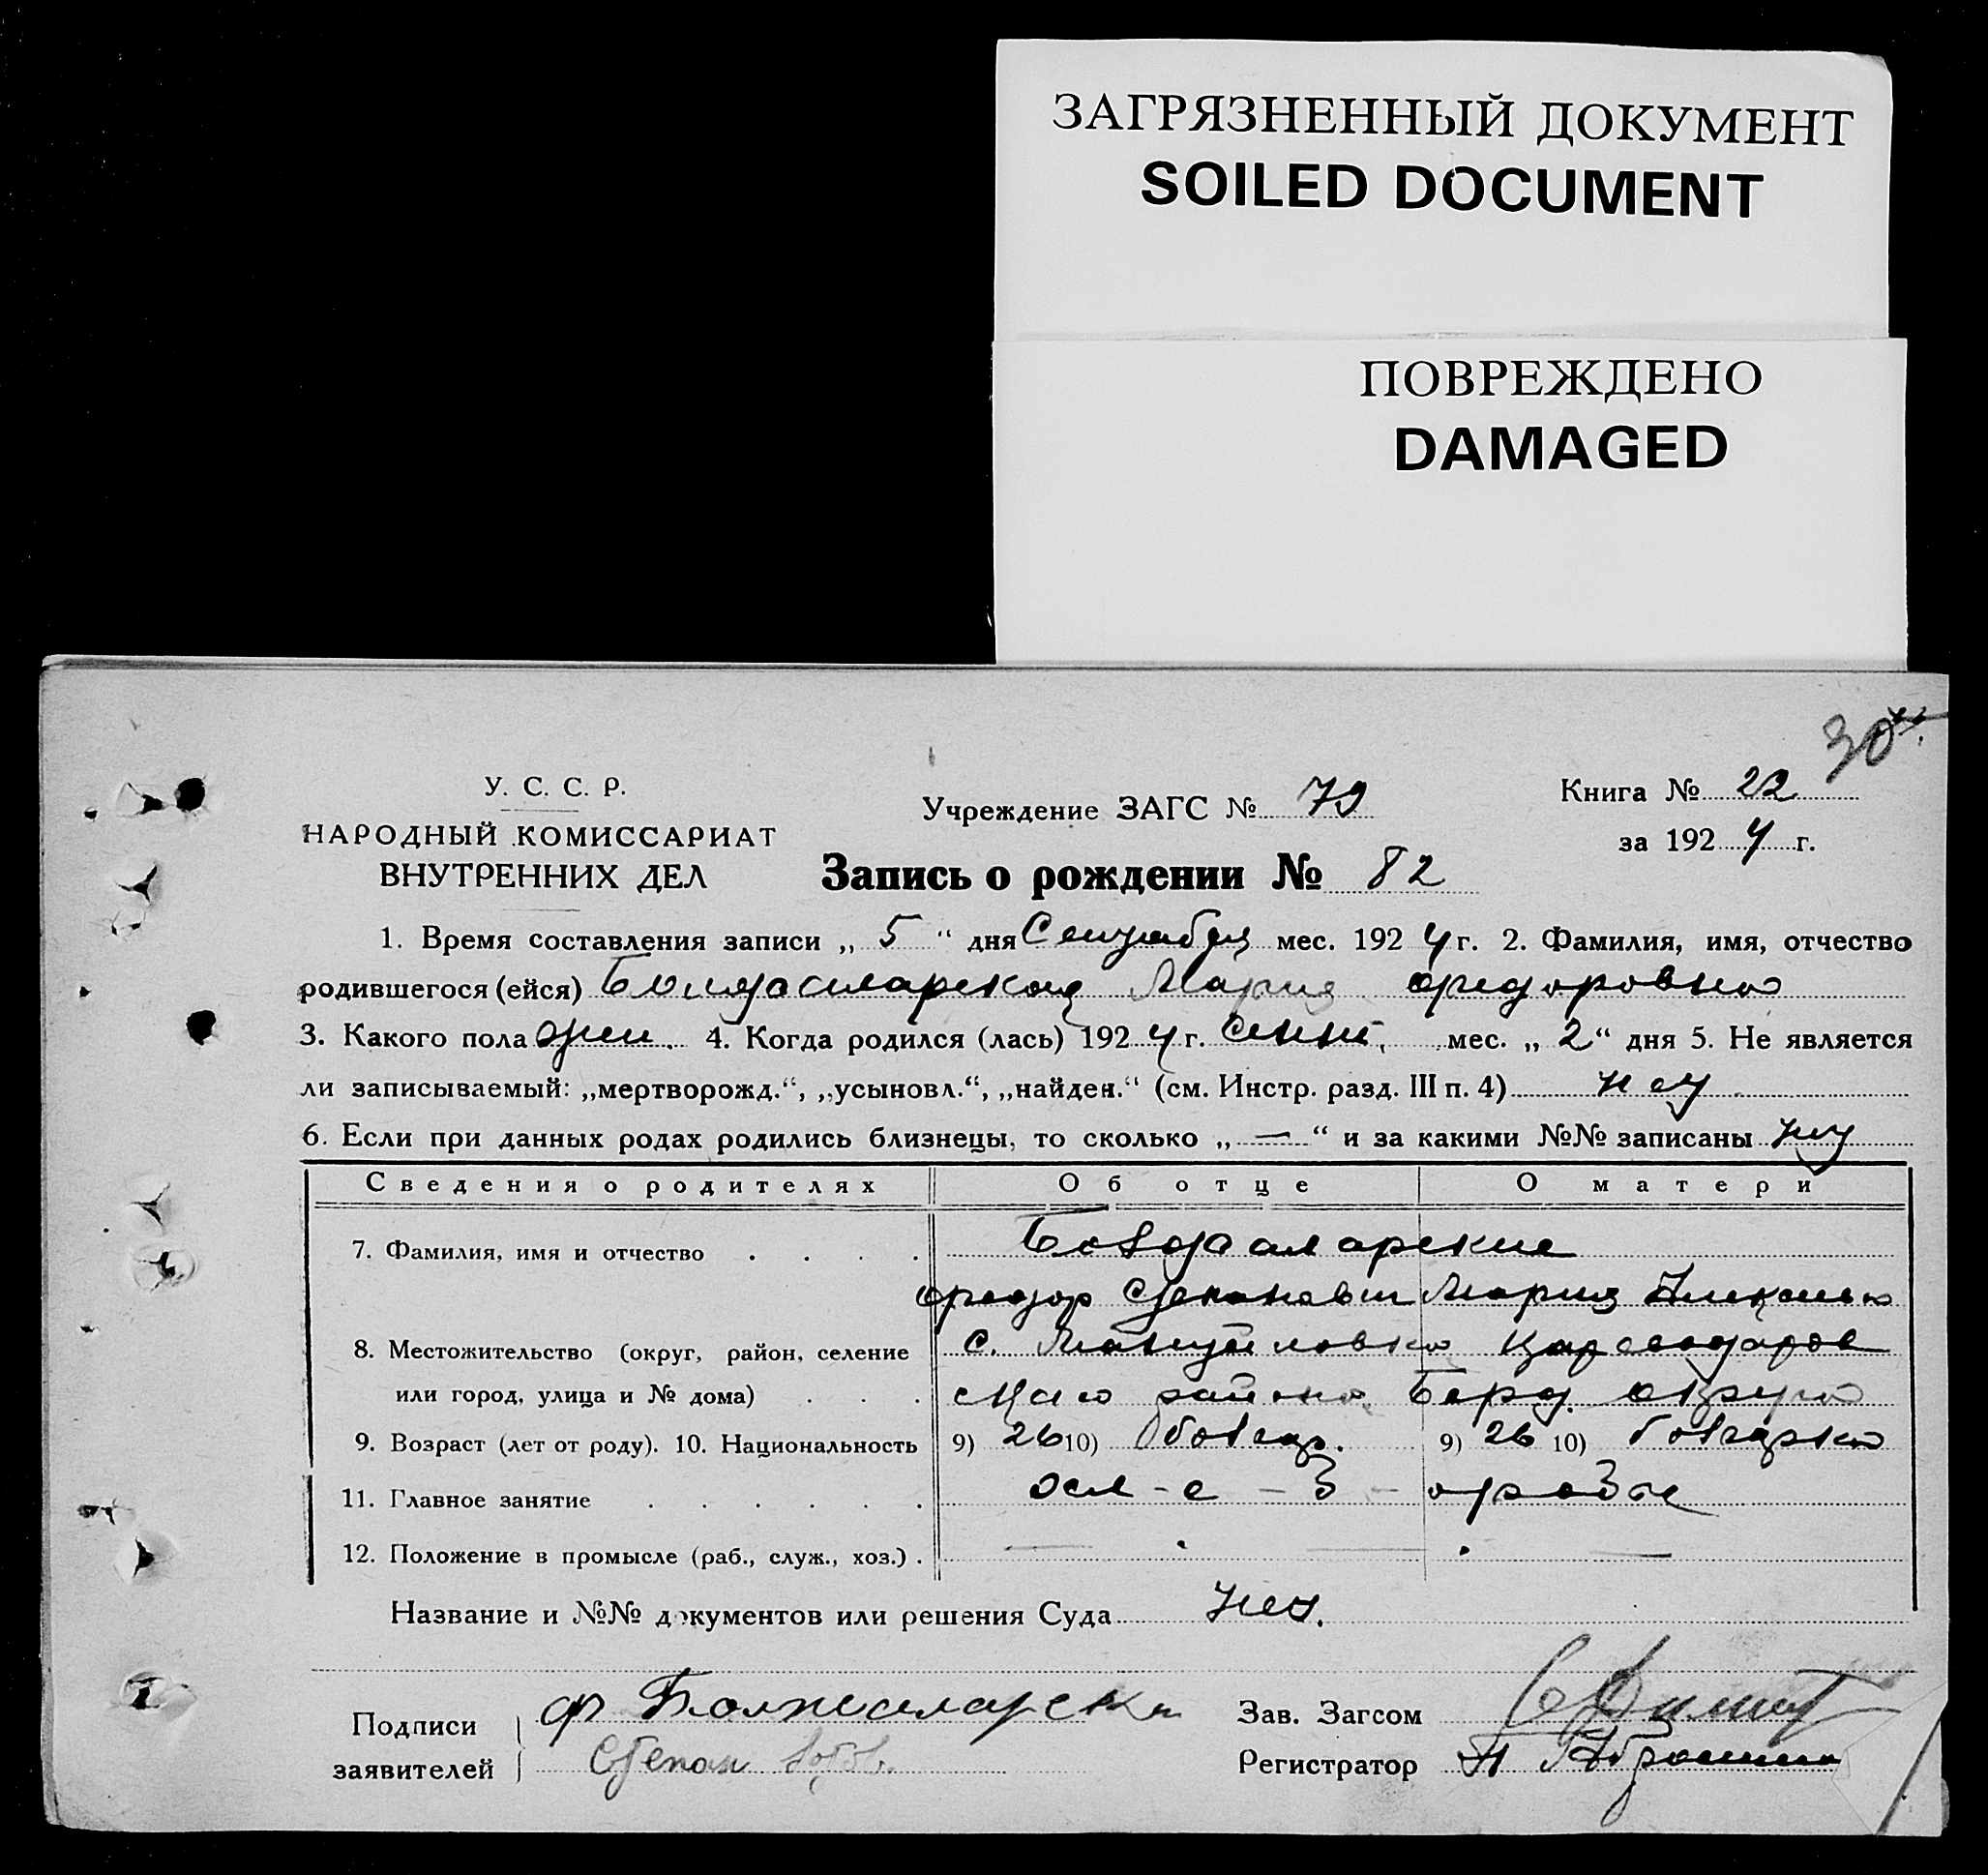 ЗАГРЯЗНЕННЫЙ ДОКУМЕНТ
SOILED DOCUMENT
ПОВРЕЖДЕНО
DAMAGED
30
У. С. С. Р.
НАРОДНЫЙ КОМИССАРИАТ
ВНУТРЕННИХ ДЕЛ
Учреждение ЗАГС № 79
Книга № 22
за 1924 г.
Запись о рождении № 82
1. Время составления записи „ 5 “ дня Сентября мес. 1924 г. 2. Фамилия, имя, отчество
родившегося (ейся) Мария Федоровна
3. Какого пола жен. 4. Когда родился (лась) 1924 г. Сент. мес. „ 2 “ дня 5. Не является
ли записываемый: „мертворожд.“, „усыновл.“, „найден.“ (см. Инстр. разд. III п. 4) нет
6. Если при данных родах родились близнецы, то сколько „ — “ и за какими №№ записаны нет
Сведения о родителях Об отце О матери
7. Фамилия, имя и отчество
Федор Степанович Мария
8. Местожительство (округ, район, селение С. Мануйловка Цареводаров
или город, улица и № дома) ского района Берд. округа
9. Возраст (лет от роду). 10. Национальность 9) 26 10) болгар. 9) 26 10) болгарка
11. Главное занятие
12. Положение в промысле (раб., служ., хоз.) . — —
Название и №№ документов или решения Суда нет.
Подписи
заявителей
Ф
Степан
Зав. Загсом
Регистратор